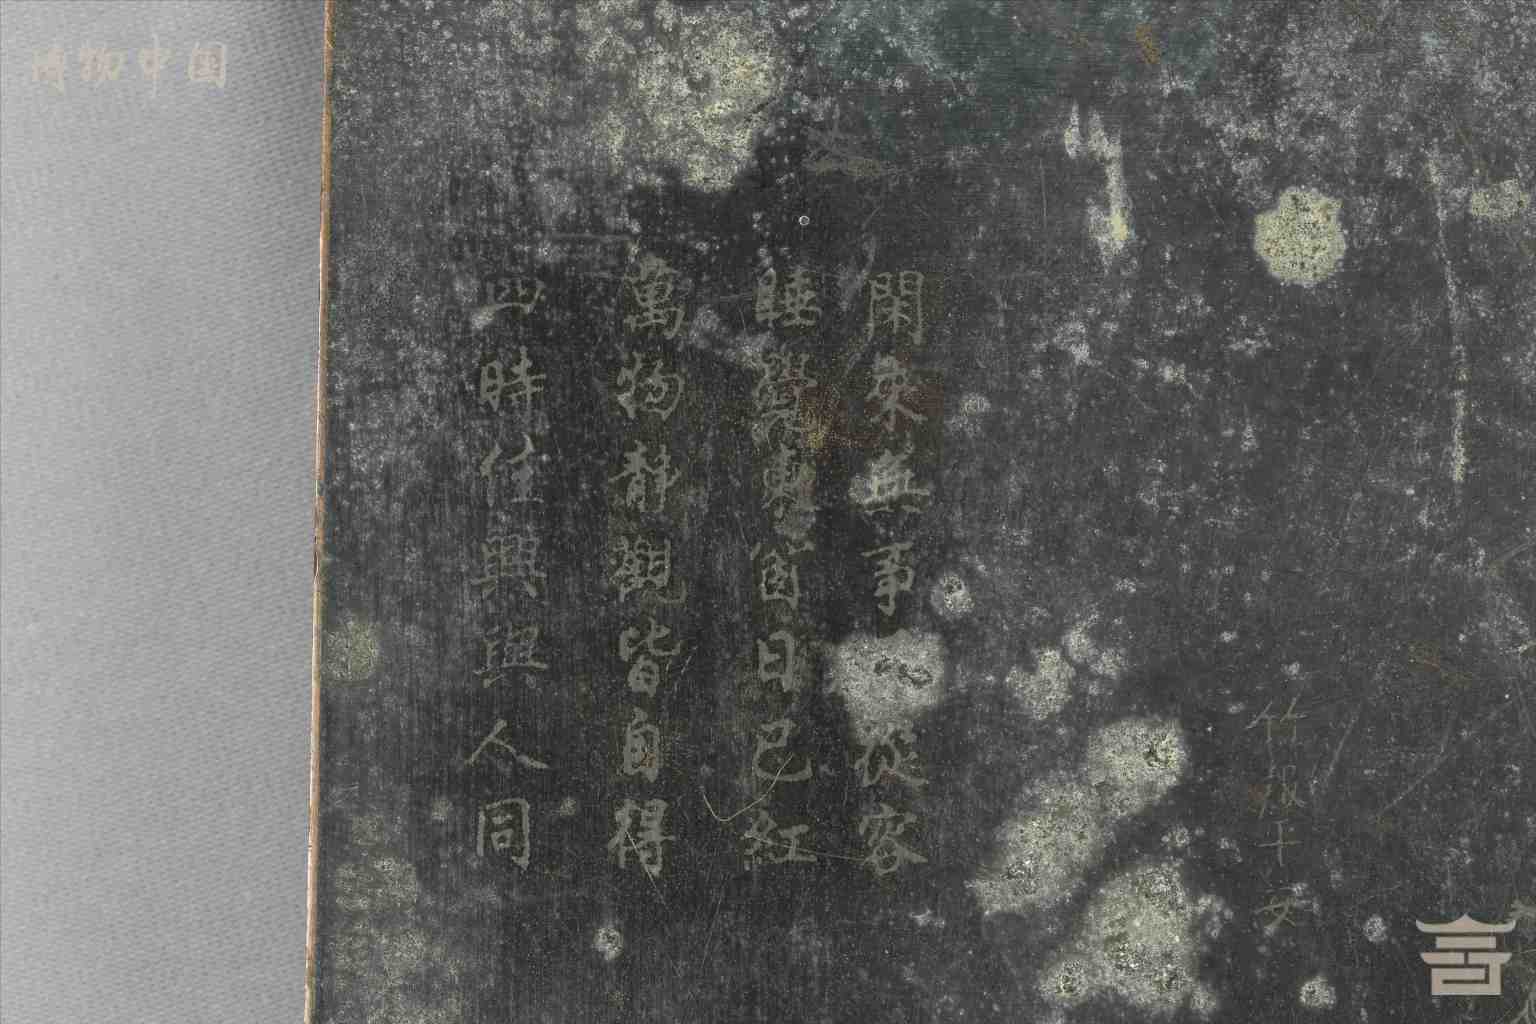 博物中国
閑來無事不從容
睡覺東窗日已紅
萬物靜觀皆自得
四時佳興與人同
竹報平安